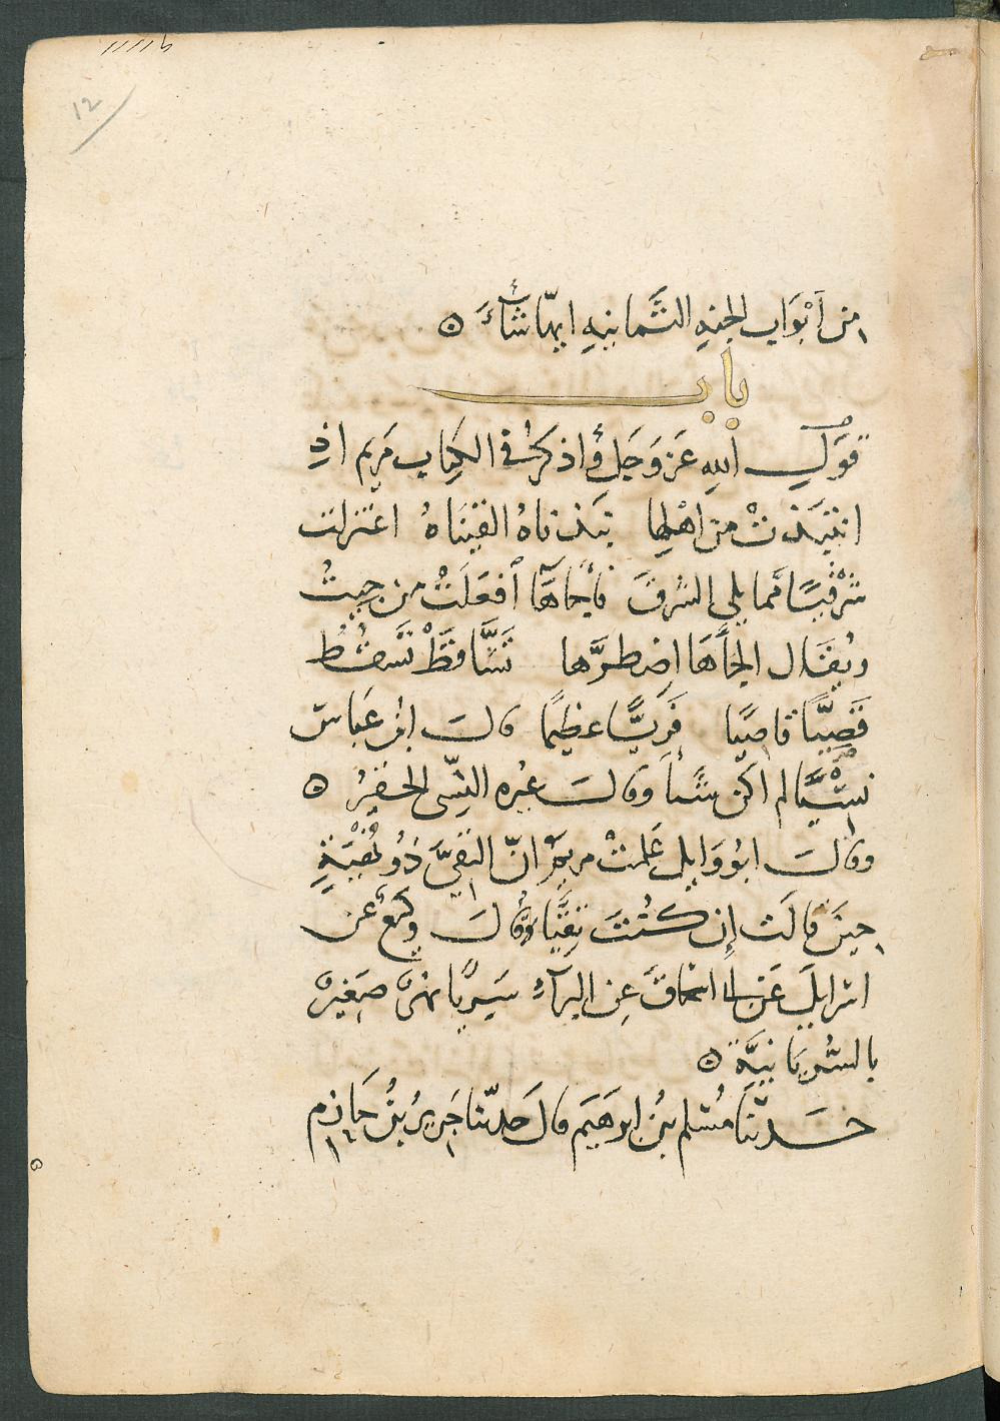 ١٢
من أَبْوَاب الجنهِ الثَّمانيهِ ايهّا شَاءَ ٥
باب
قَوْلِ اللهِ عَزَّ وَجَلَّ وَاذكُرْ فى الكِتاب مَريم اذِ
انتَبَذَتْ من اهْلِها نبَذناهُ القَيْنَاهُ اعتزلت
شَرْقيًّا مما يلى الشرقَ فأجاَهَا أفعَلَتْ من جِيتُ
ويُقَال الجَأَهَا اضطرَّها تَسَّاقَطْ تَسقُطُ
قَصِيًّا قاصيًا فَرِيًّا عظيمًا قالَ ابن عَباس
نسْيًا لم اكن شيأ وقالَ غيره النِسْى الحقيرُ ٥
وقالَ ابُو وَايِل عَلمتْ مريمُ انّ التقىَّ ذُو نُهْيَةٍ
حِينَ قالَت إن كُنتَ تقيًّا وقالَ وكيعٌ عن
اسرايلَ عَن ابى اسحاقَ عن البرآءِ سَريًّا نهرٌ صَغيرٌ
بالسُّريَانيَّةِ ٥
حَدثنَا مُسْلم بنُ ابرهيمَ قالَ حدثنا جَريرُ بنُ حَازم